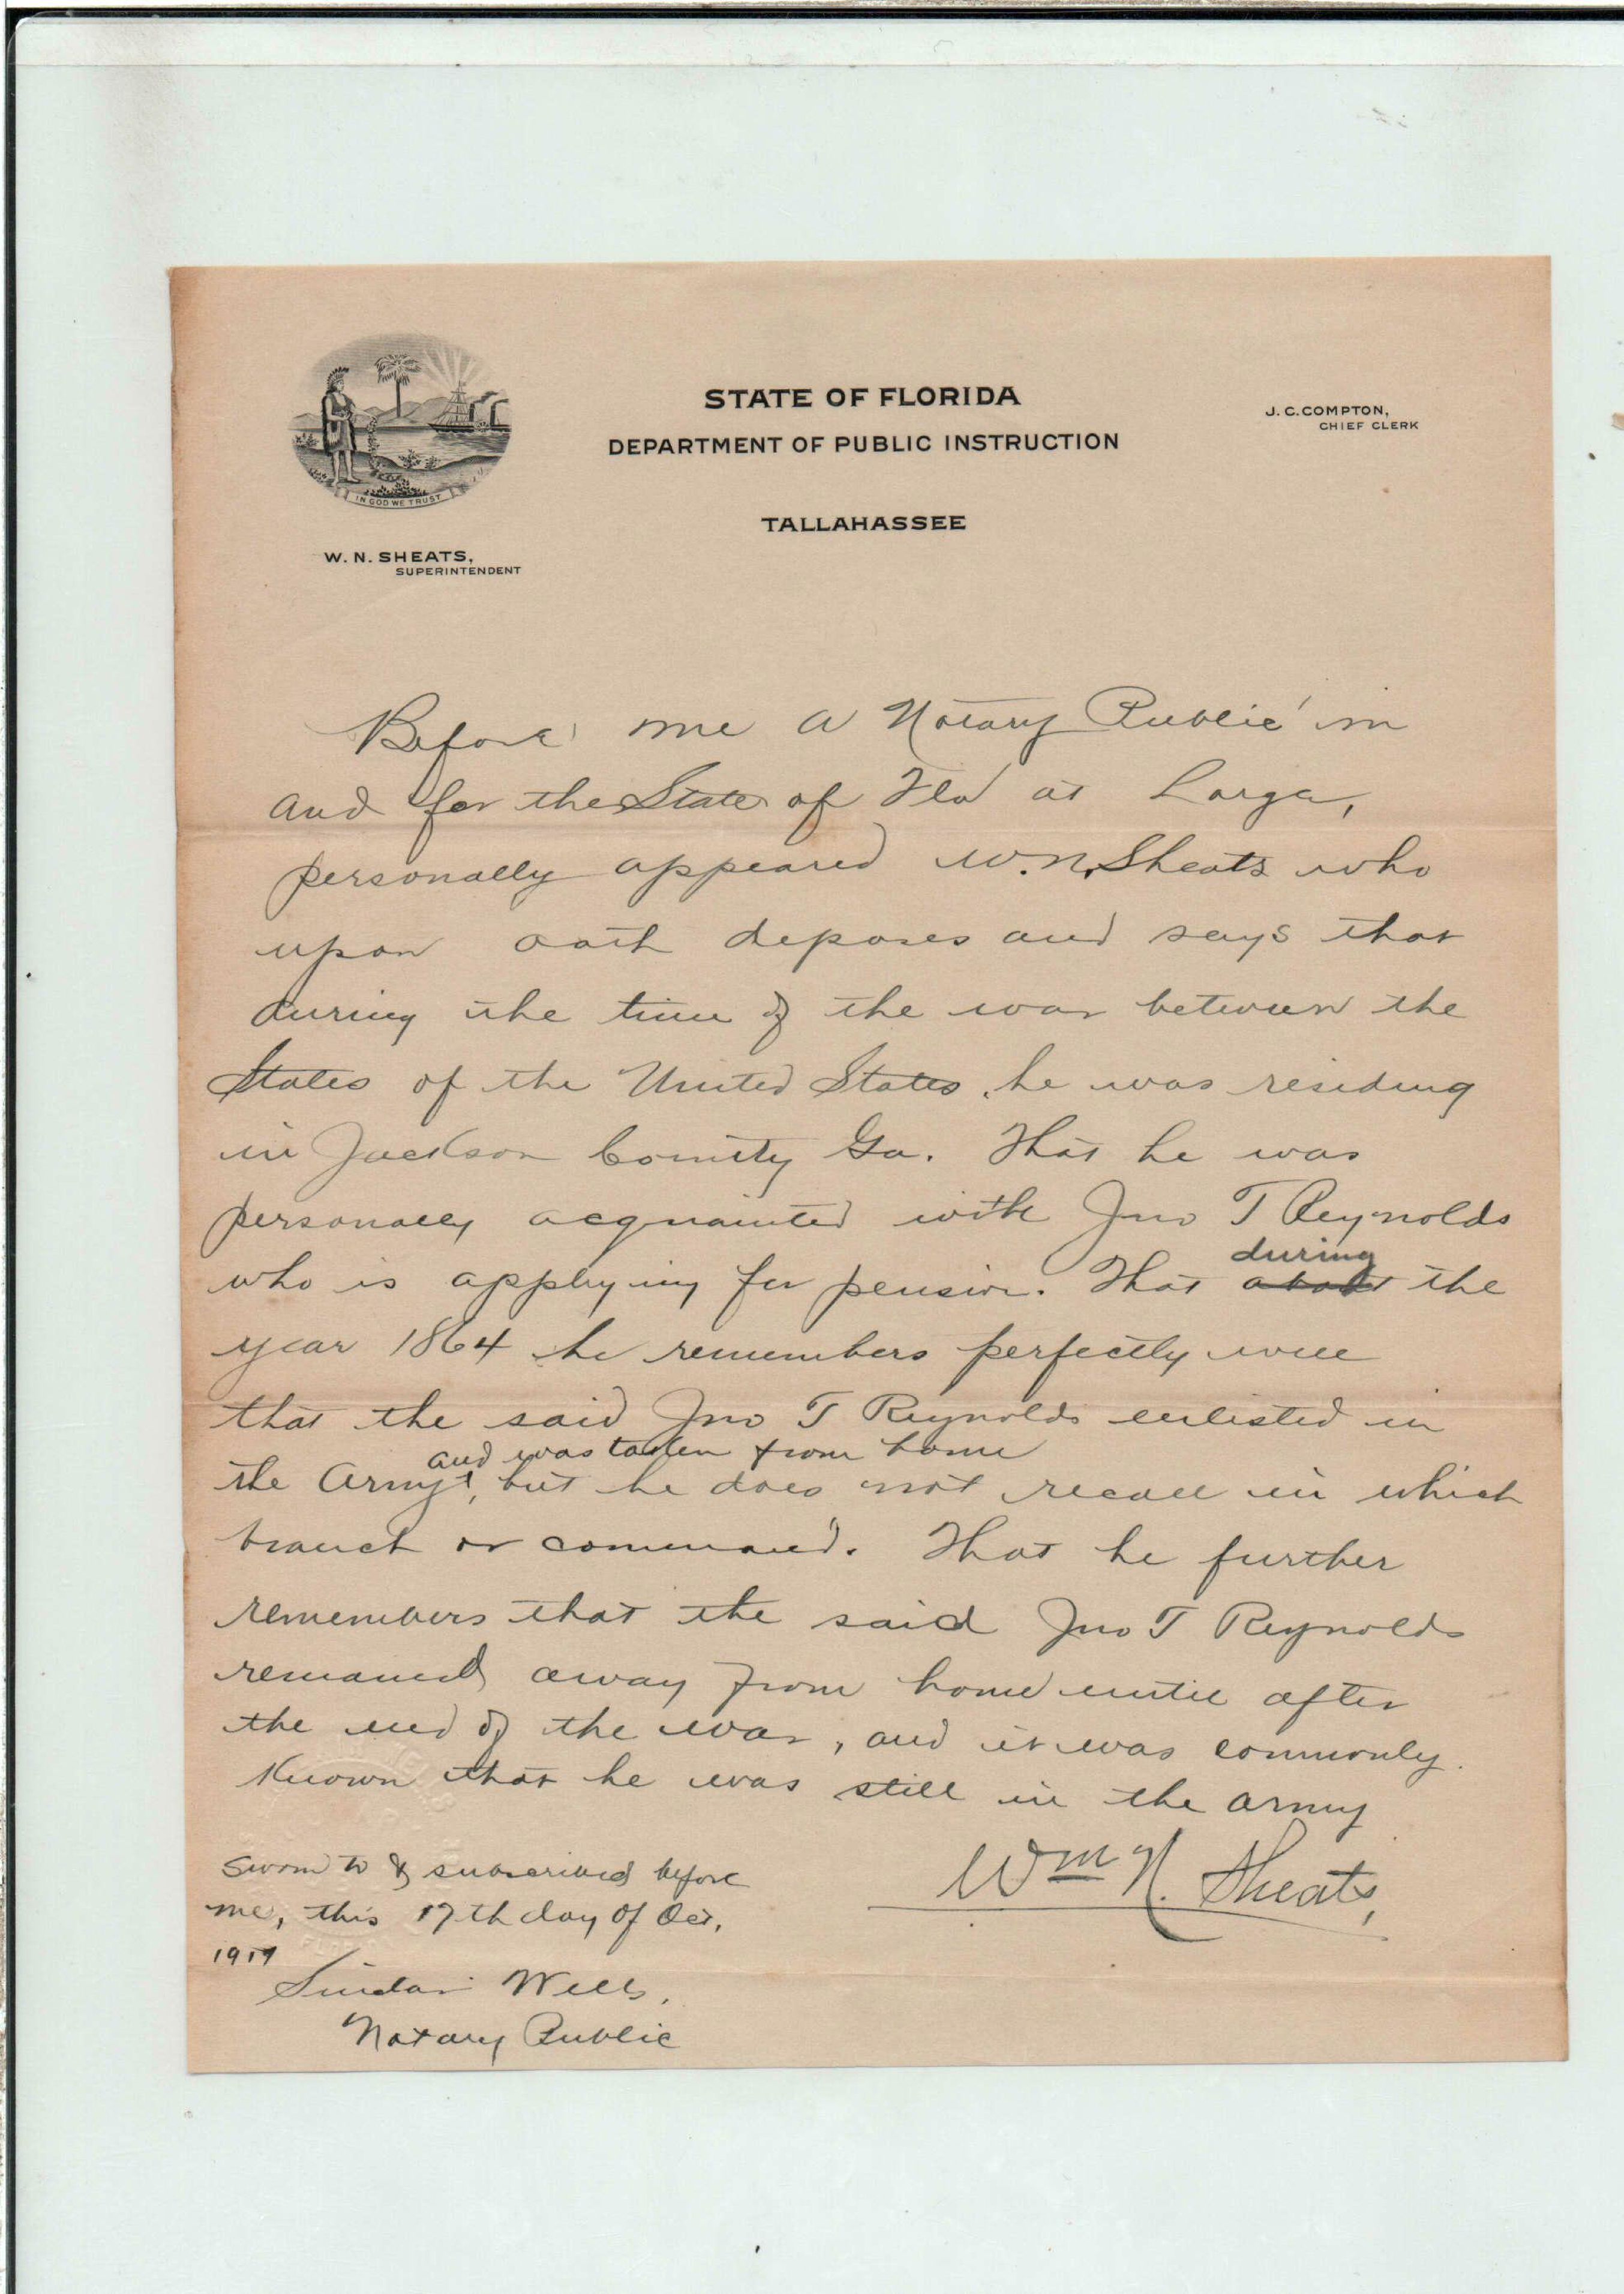 IN GOD WE TRUST
W. N. SHEATS,
SUPERINTENDENT
STATE OF FLORIDA
DEPARTMENT OF PUBLIC INSTRUCTION
TALLAHASSEE
J. C. COMPTON,
CHIEF CLERK
Before me a Notary Public in
and for the State of Fla at Large,
personally appeared W. N. Sheats who
upon oath deposes and says that
during the time of the war between the
States of the United States, he was residing
in Jackson County Ga. That he was
personally acquainted with Jno T Reynolds
who is applying for pension. That about during the
year 1864 he remembers perfectly well
that the said Jno T Reynolds enlisted in
and was taken from home
the Army, but he does not recall in which
branch or command. That he further
remembers that the said Jno T Reynolds
remained away from home until after
the end of the war, and it was commonly
known that he was still in the army
Wm N. Sheats,
Sworn to & subscribed before
me, this 17th day of Oct,
1917
Wells,
Notary Public